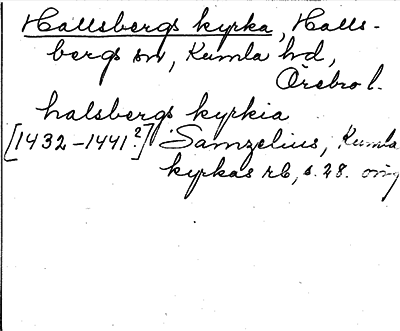 Hallsbergs kyrka, Halls-
bergs sn, Kumla hd,
Örebro l.
halsbergs kyrkia
[1432-1441?] Samzelius, Kumla
kyrkas rb, s. 28. orig